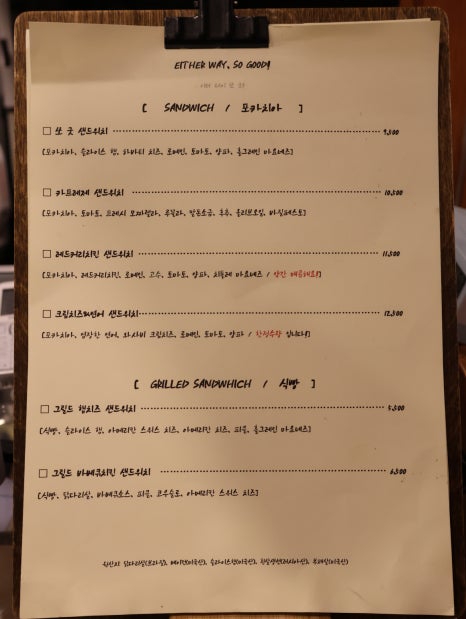 EITHER WAY, SO GOOD!
[ SANDWICH / 포카치아 ]
□ 쏘 굿 샌드위치 9,500
[포카치아, 슬라이스 햄, 하바티 치즈, 로메인, 토마토, 양파, 홀그레인 마요네즈]
□ 카프레제 샌드위치 10,500
[포카치아, 토마토, 프레시 모짜렐라, 루꼴라, 말돈소금, 후추, 올리브오일, 바질페스토]
□ 레드커리치킨 샌드위치 11,500
[포카치아, 레드커리치킨, 로메인, 고수, 토마토, 양파, 치폴레 마요네즈 / 약간 매콤해요!]
□ 크림치즈&연어 샌드위치 12,500
[포카치아, 염장한 연어, 와사비 크림치즈, 로메인, 토마토, 양파 / 한정수량 입니다!]
[ GRILLED SANDWHICH / 식빵 ]
□ 그릴드 햄치즈 샌드위치 5,500
[식빵, 슬라이스 햄, 아메리칸 스위스 치즈, 아메리칸 치즈, 피클, 홀그레인 마요네즈]
□ 그릴드 바베큐치킨 샌드위치 6,500
[식빵, 닭다리살, 바베큐소스, 피클, 코우슬로, 아메리칸 스위스 치즈]
원산지 닭다리살(브라질), 베이컨(미국산), 슬라이스햄(미국산),